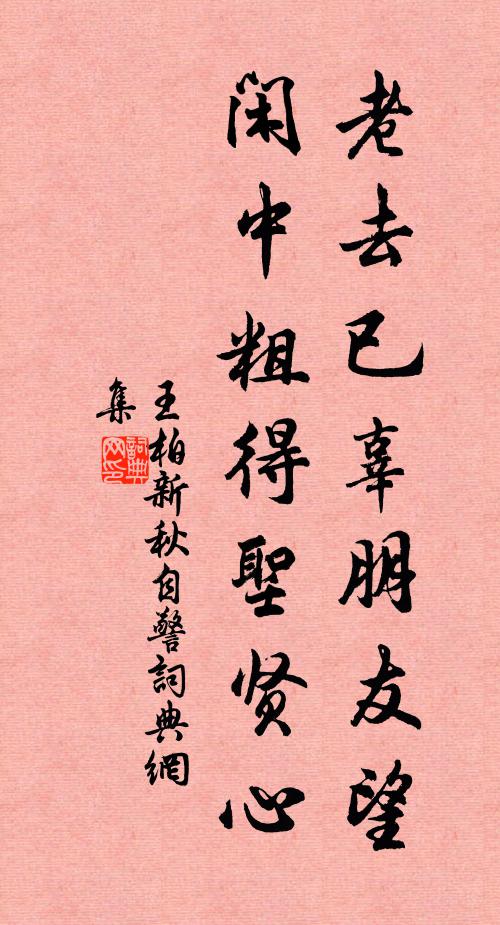 老去已辜朋友望
闲中粗得聖贤心
王柏新秋自警詞典網
集
詞典
网印